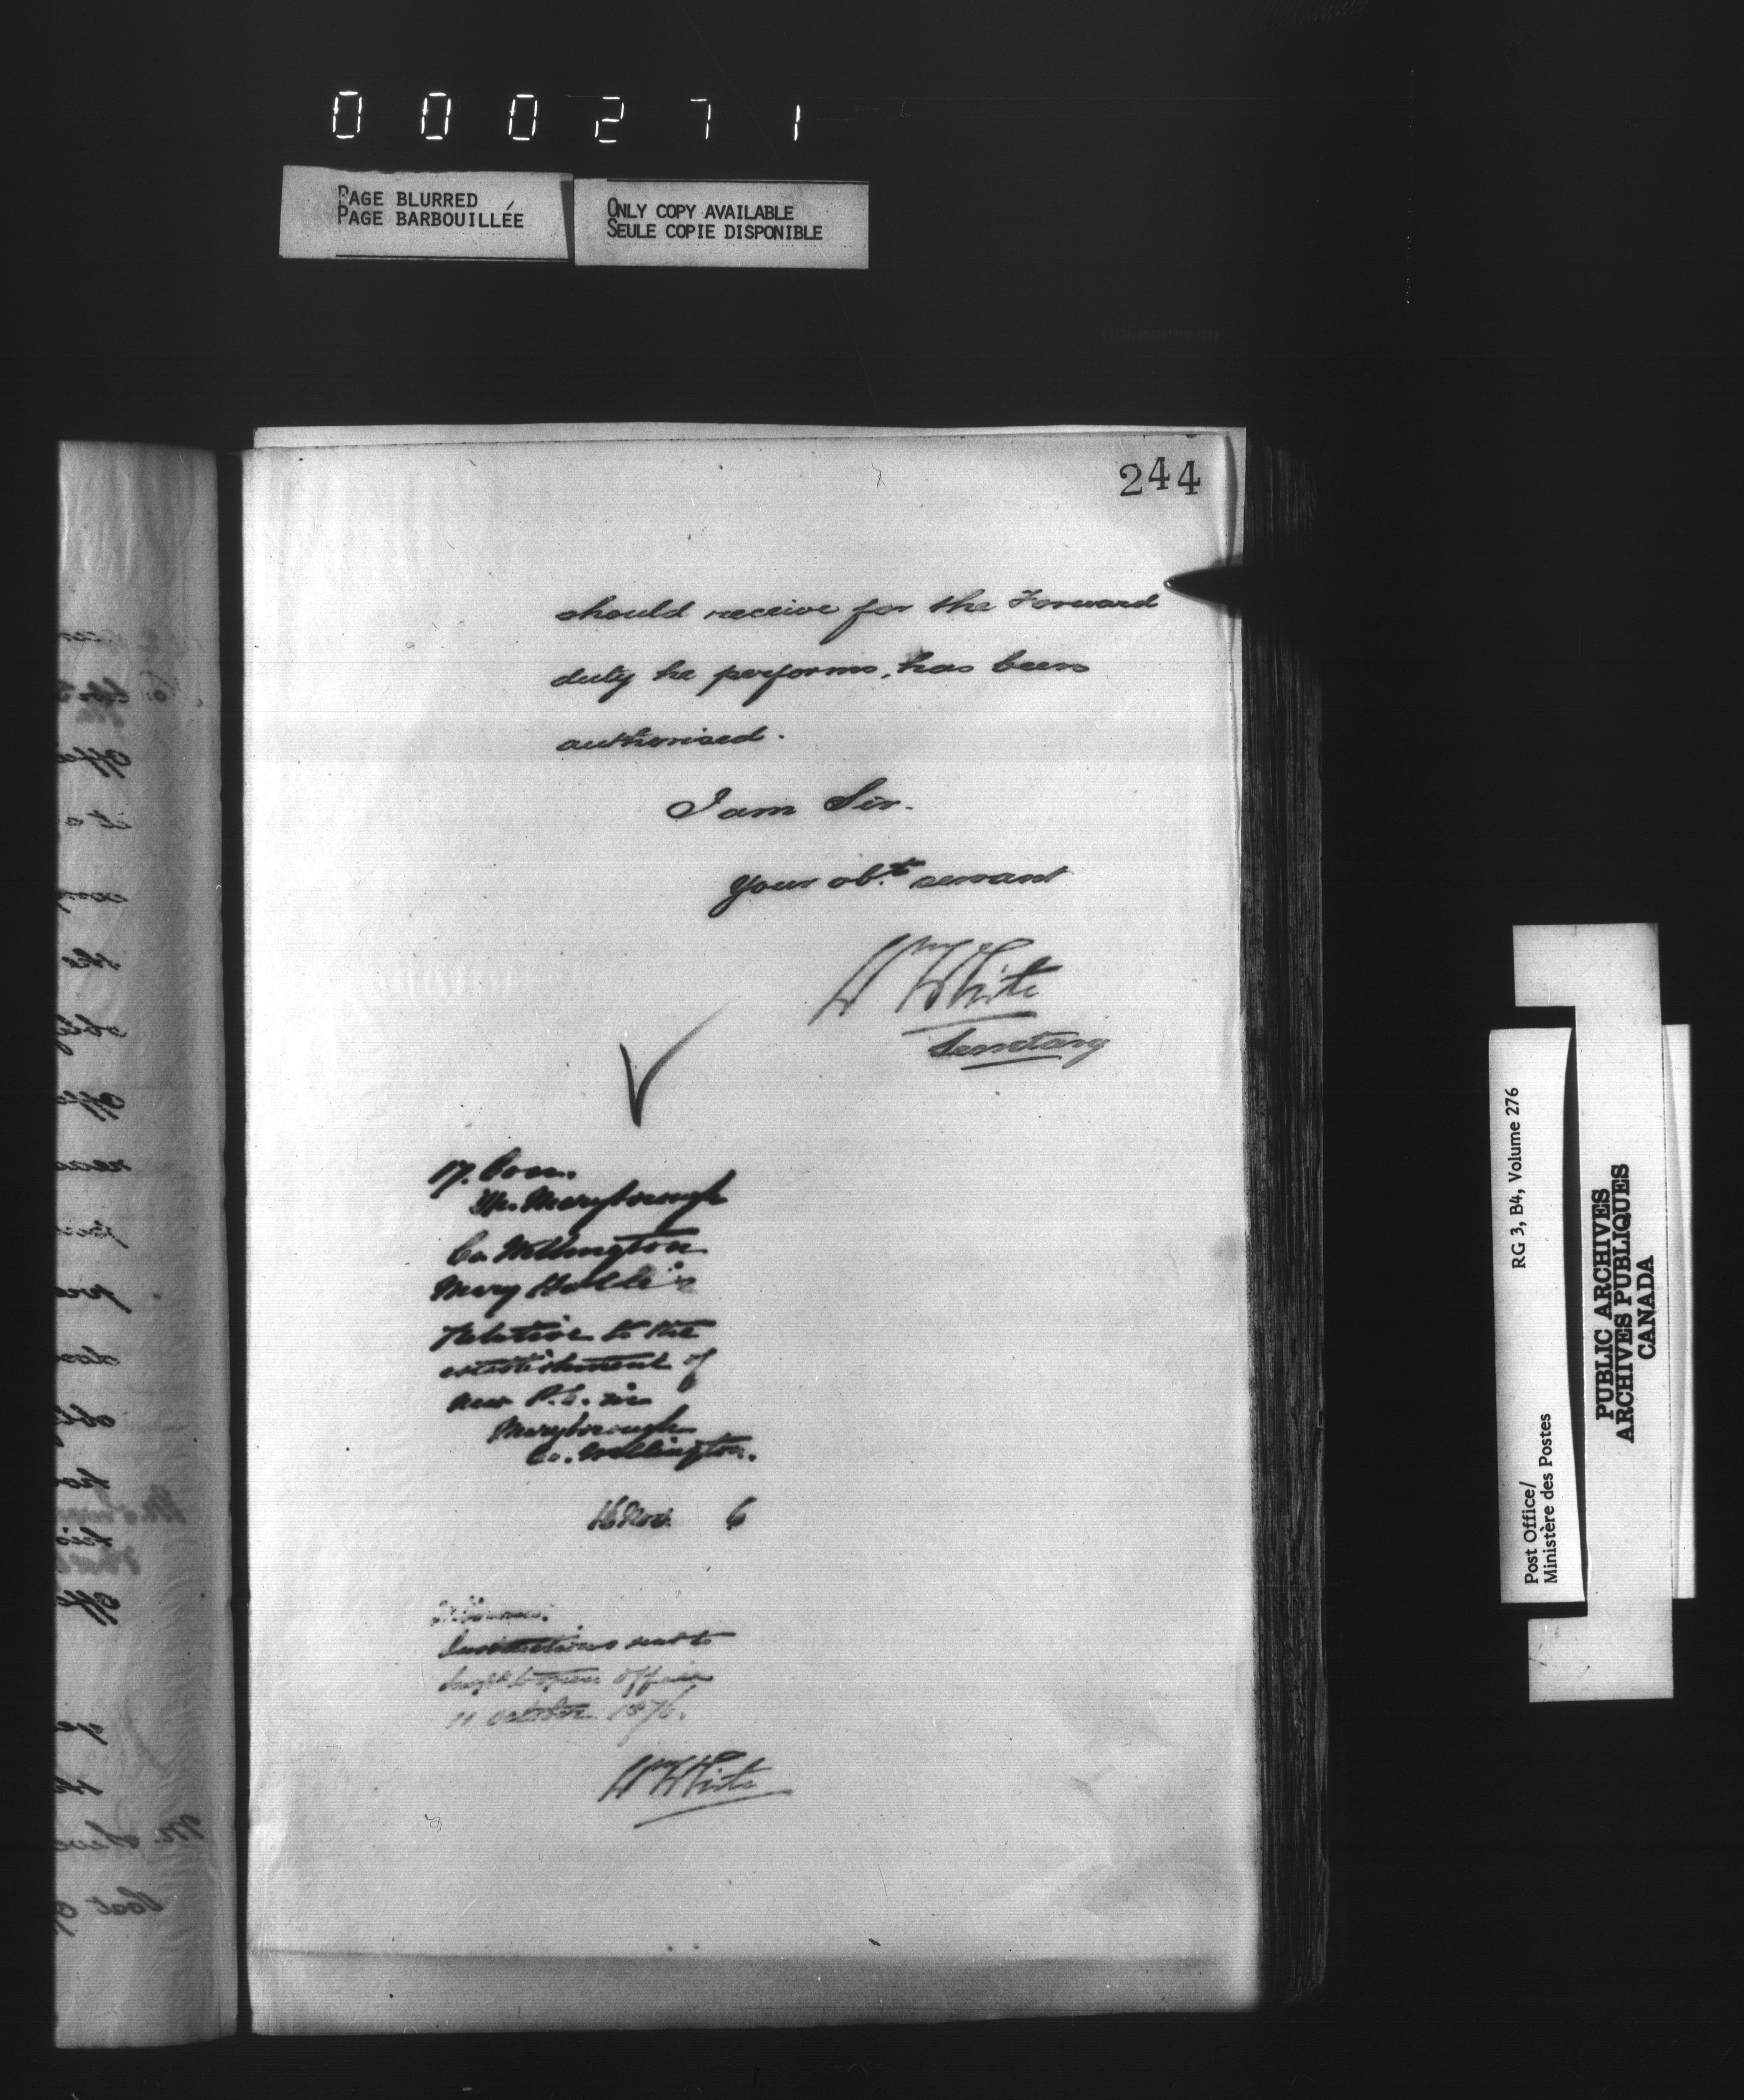 000271
PAGE BLURRED
PAGE BARBOUILLÉE
ONLY COPY AVAILABLE
SEULE COPIE DISPONIBLE
244
should receive for the Forward
duty he performs, has been
authorised.
I am Sir.
Your obt. servant
Wm White
Secretary
17. Com.
Maryborough
Co. Wellington
Mary
Relative to the
establishment of
new P.O. in
Maryborough
Co. Wellington.
16 Nov. 6
Instructions sent to
open office
11 October 1876.
Wm White
Post Office/
Ministère des Postes
RG 3, B4, Volume 276
PUBLIC ARCHIVES
ARCHIVES PUBLIQUES
CANADA